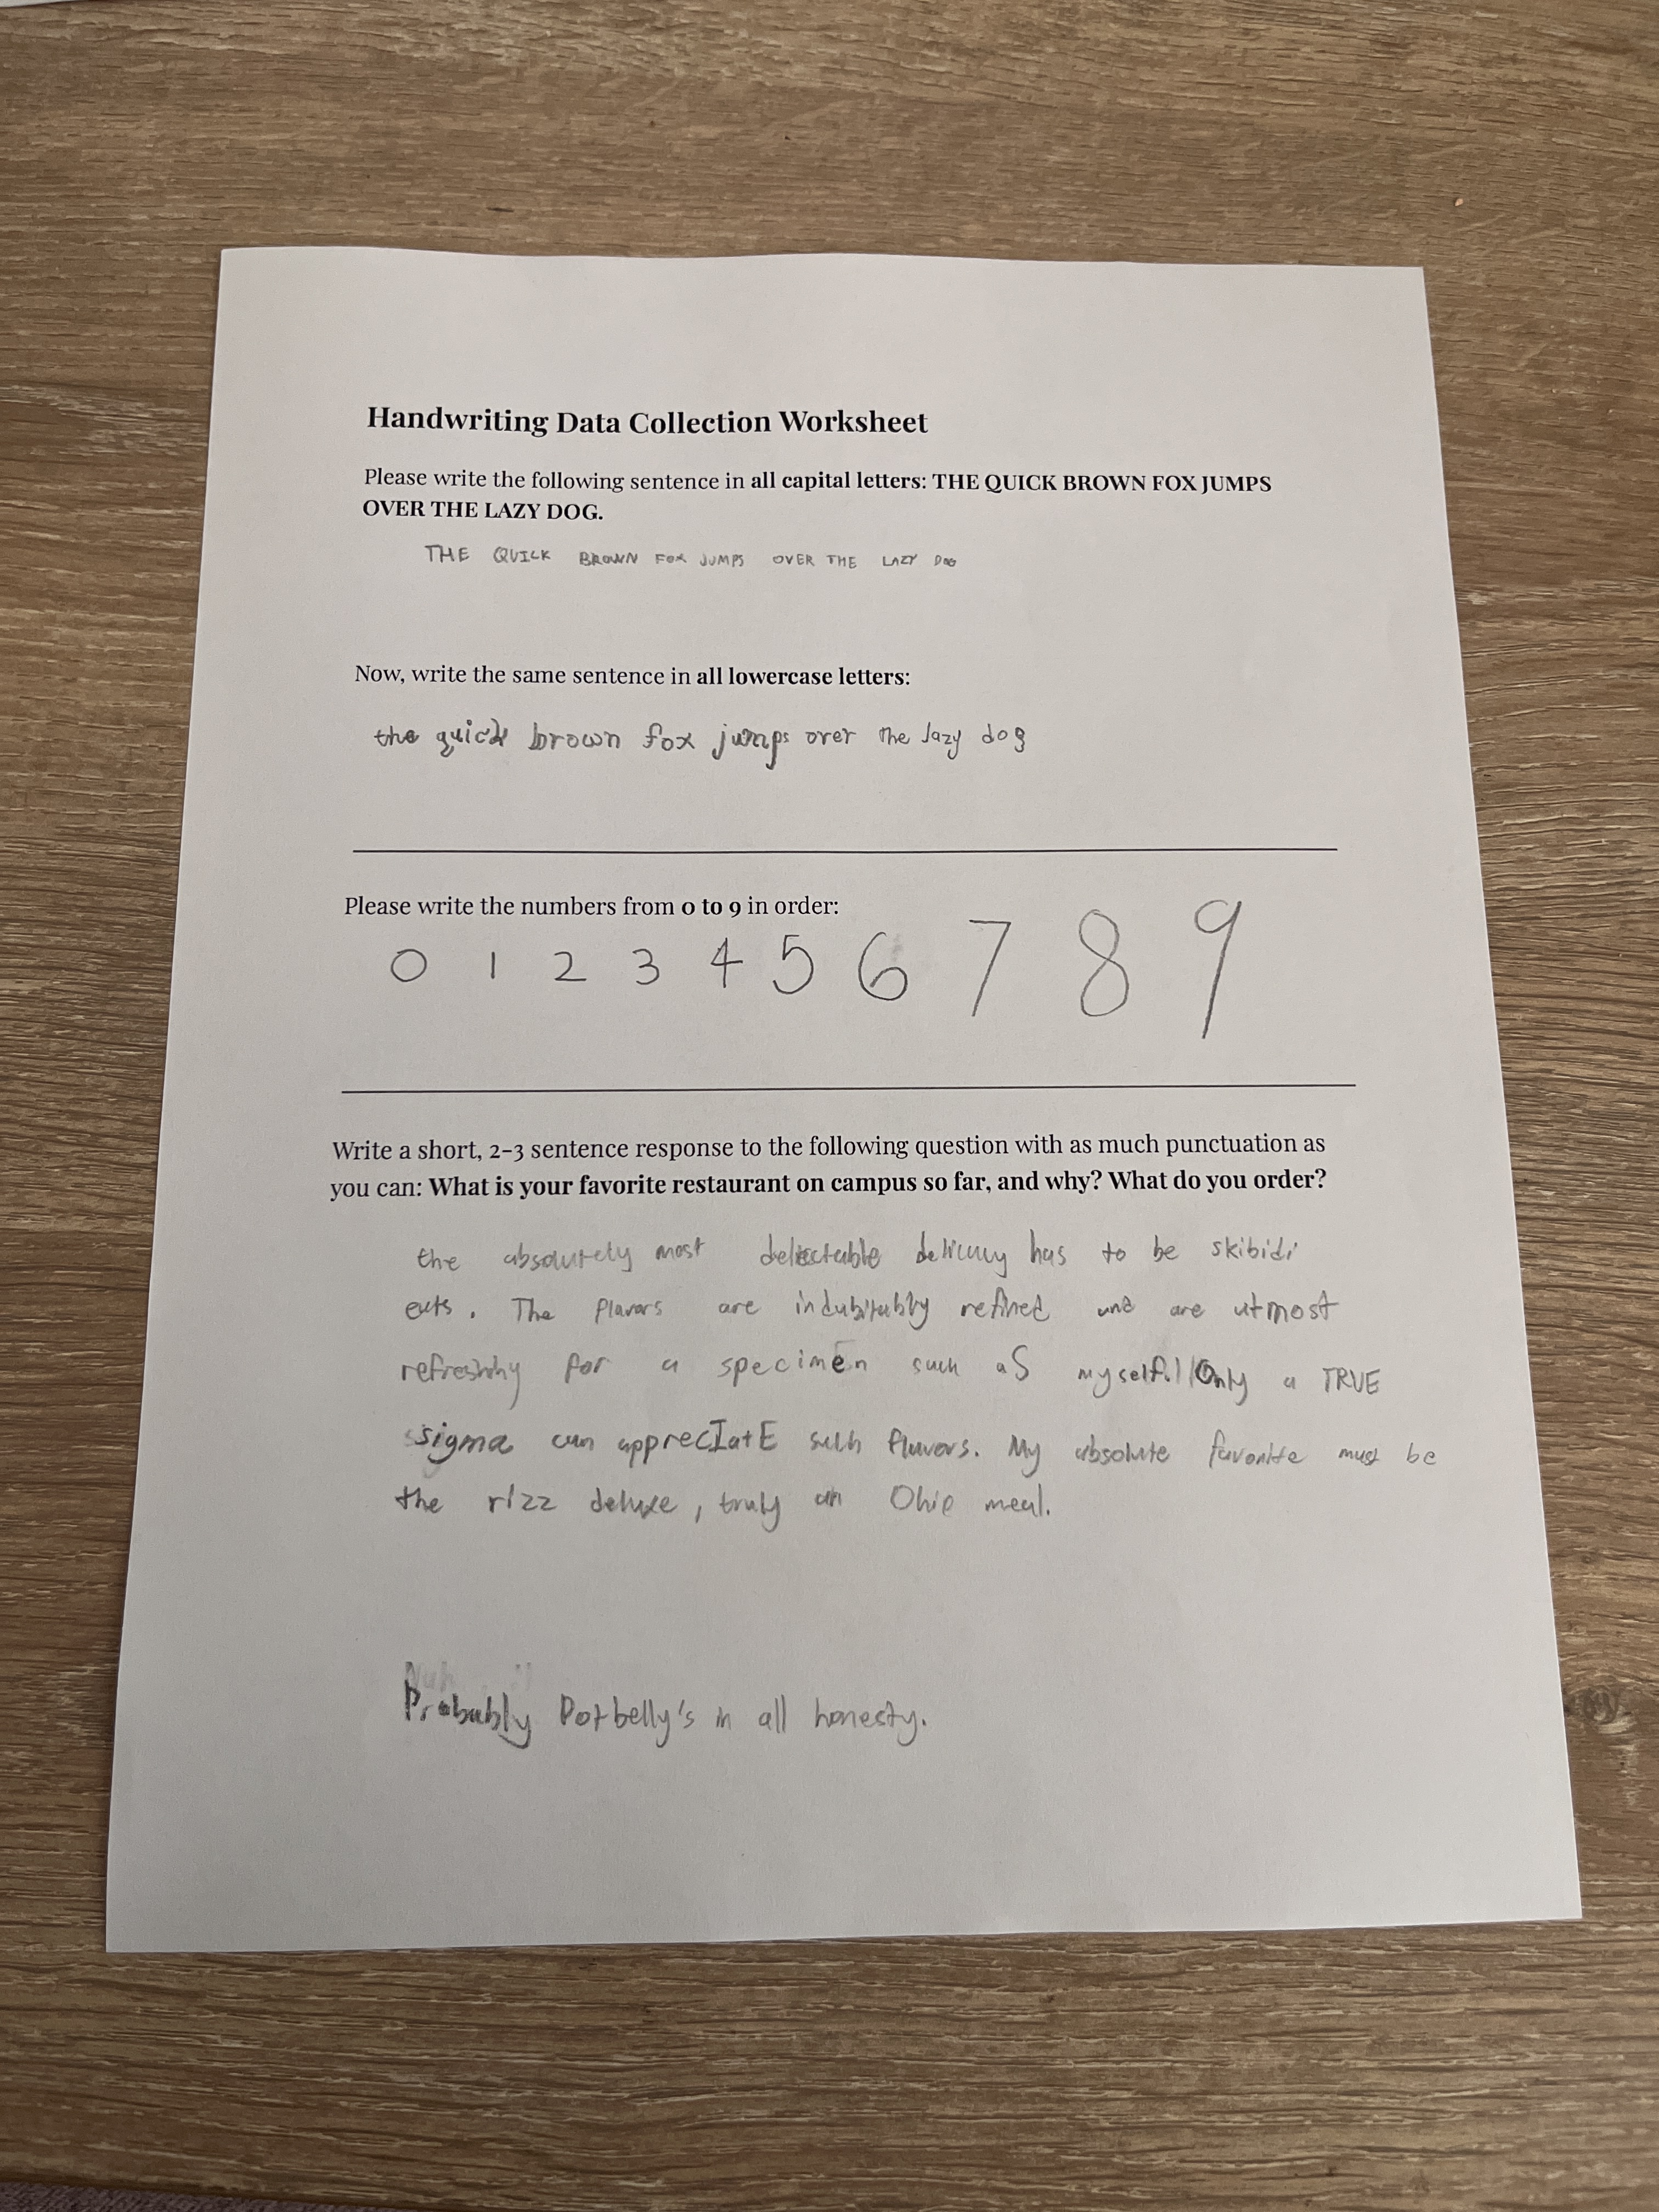 Handwriting Data Collection Worksheet
Please write the following sentence in all capital letters: THE QUICK BROWN FOX JUMPS
OVER THE LAZY DOG.
THE QUICK BROWN FOX JUMPS OVER THE LAZY DOG
Now, write the same sentence in all lowercase letters:
the quick brown fox jumps over the lazy dog
Please write the numbers from 0 to 9 in order:
0 1 2 3 4 5 6 7 8 9
Write a short, 2-3 sentence response to the following question with as much punctuation as
you can: What is your favorite restaurant on campus so far, and why? What do you order?
the absolutely most delectable has to be skibidi
eats. The flavors are indubitably refined and are utmost
refreshing for a specimen such aS myself. Only a TRUE
sigma can apprecIatE such flavors. My absolute favorite must be
the rIzz deluxe, truly an Ohio meal.
Probably Potbelly's in all honesty.